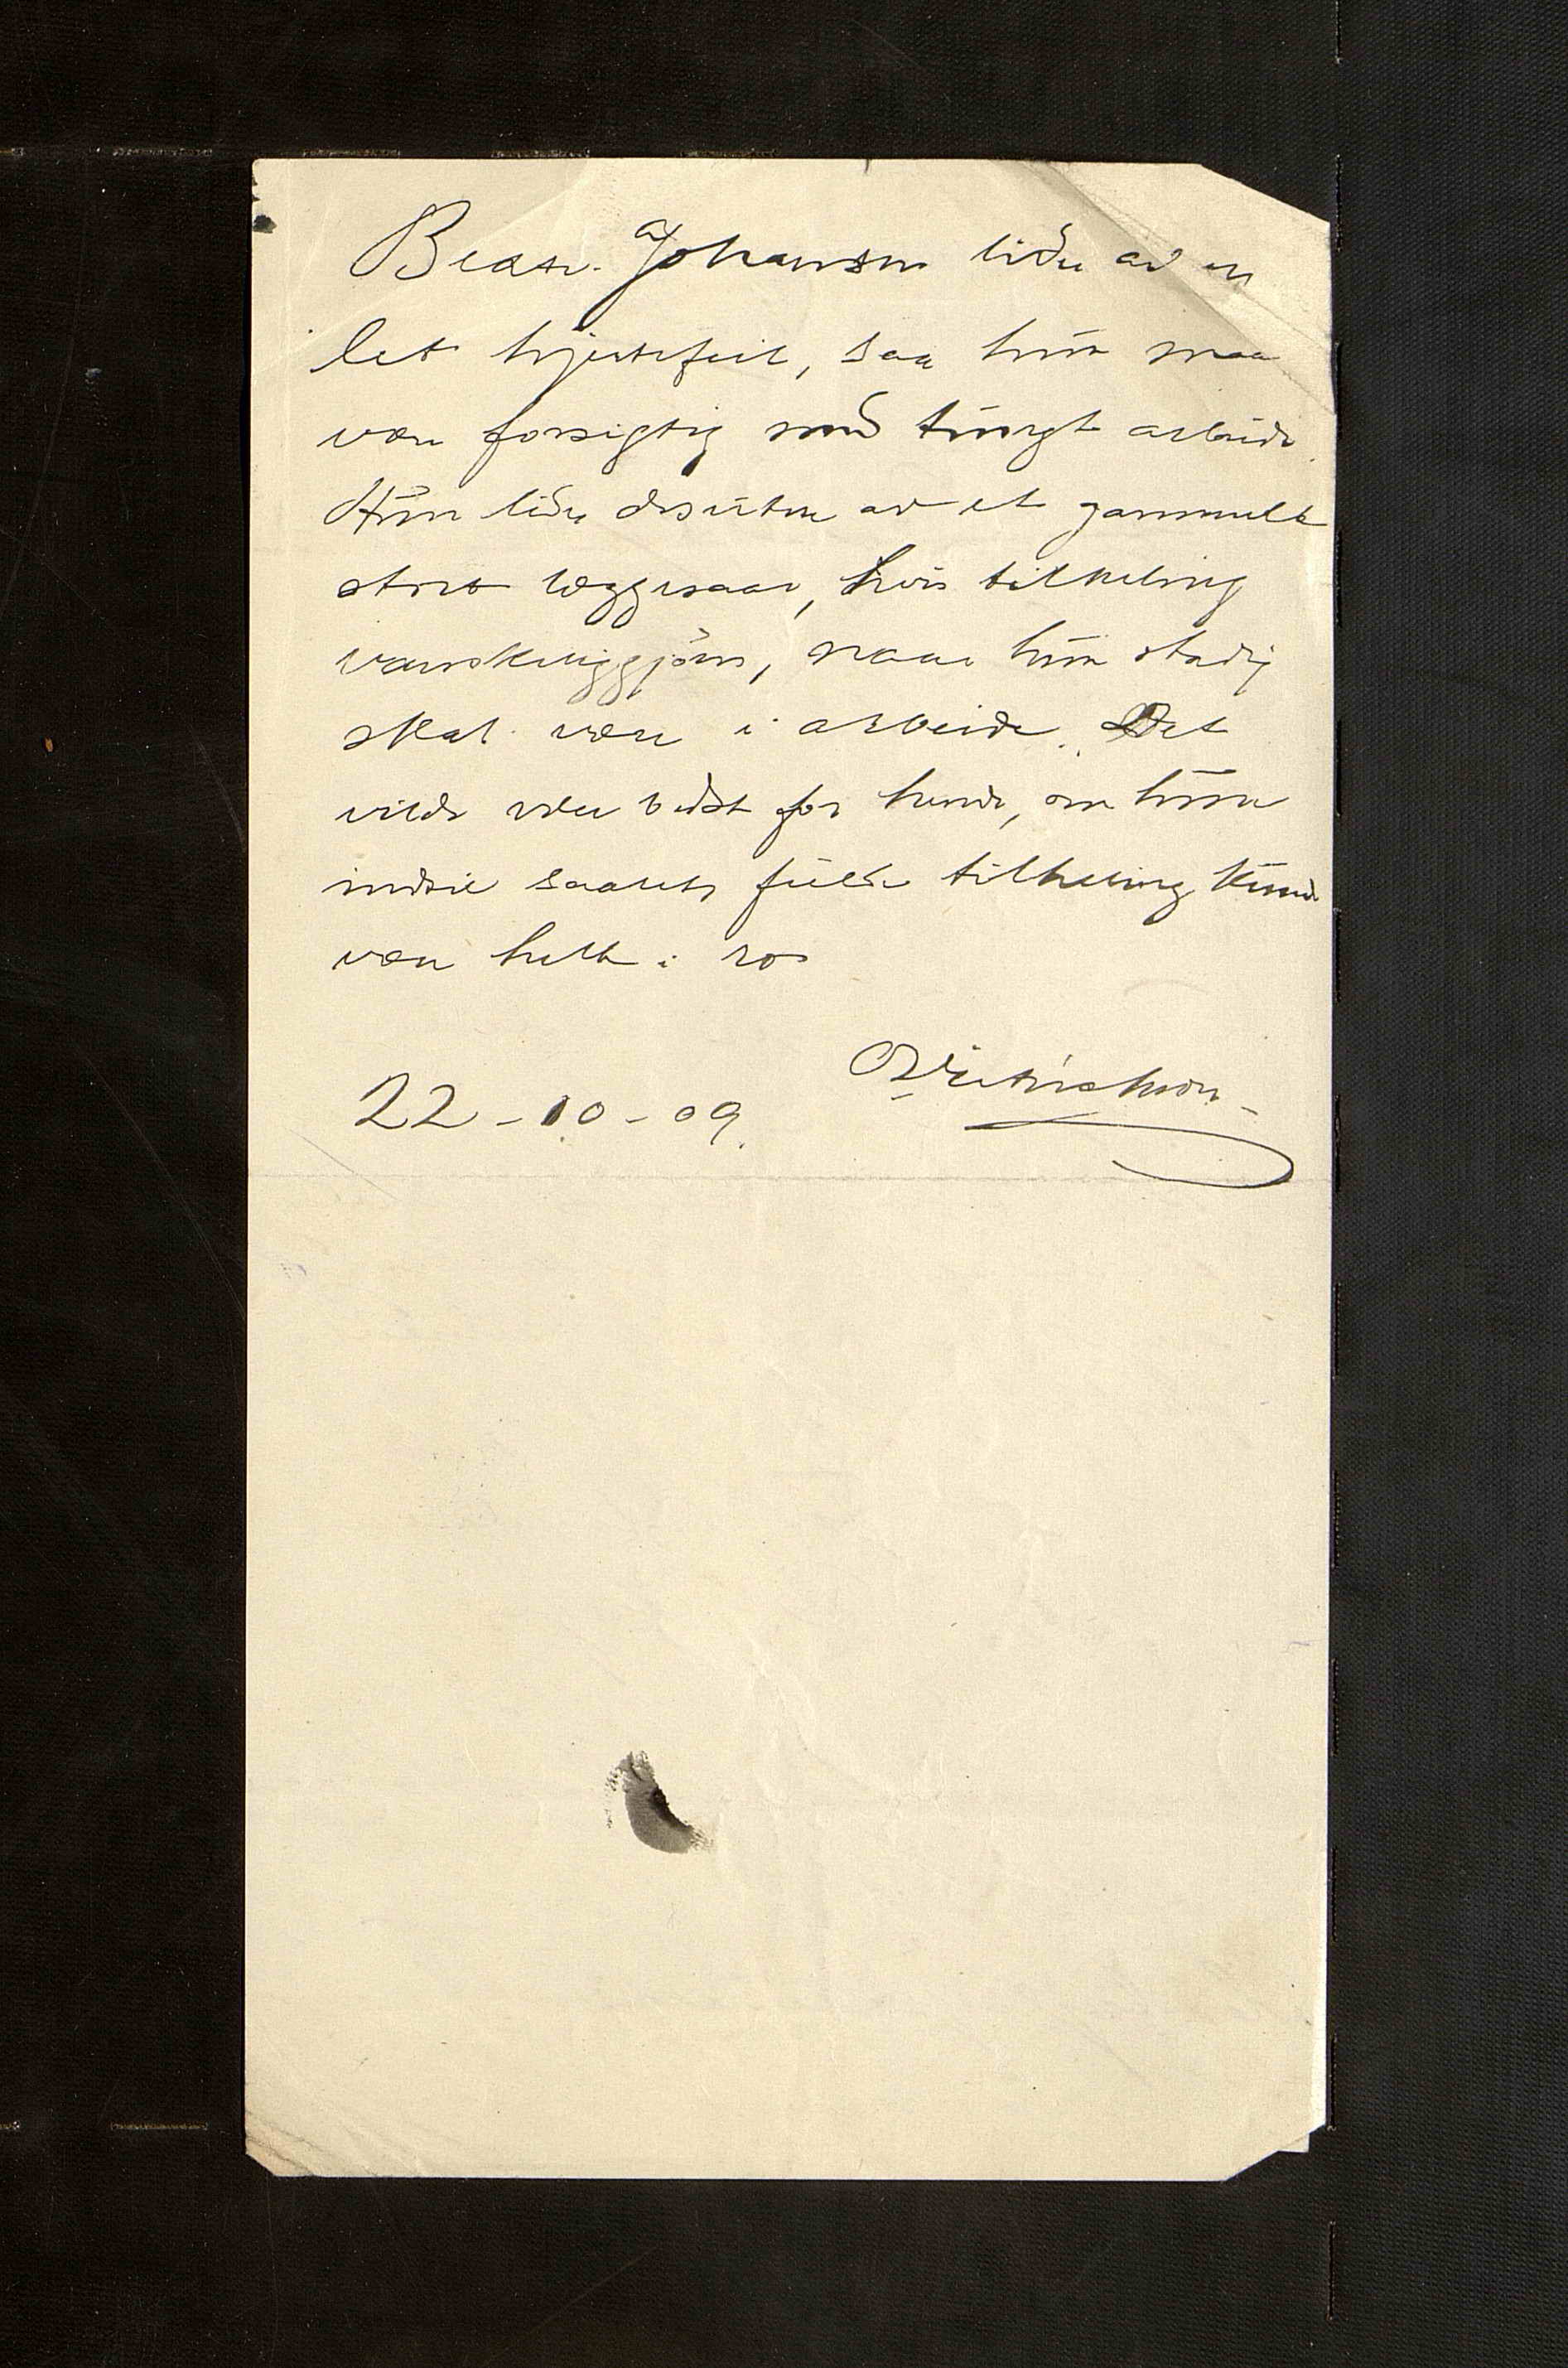 Beate Johansen lider av en
let hjertefeil, saa hun maa
være forsigtig med tungt arbeide.
Hun lider desuten av et gammelt
stort læggesaar, hvis tilheling
vanskeliggjøres, naar hun stadig
skal være i arbeide. Det
vilde være bedst for hende, om hun
indtil saarets fulde tilheling kunde
være helt i ro
22-10-09.